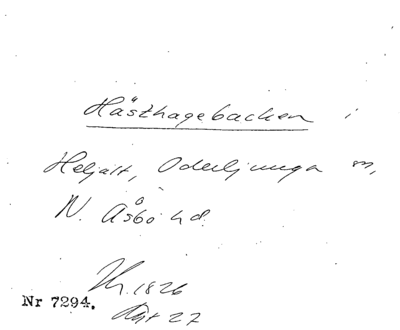 Hästhagebacken i
Heljalt, Oderljunga sn,
N. Åsbo hd.
1826
Nr 7294.
Akt 27